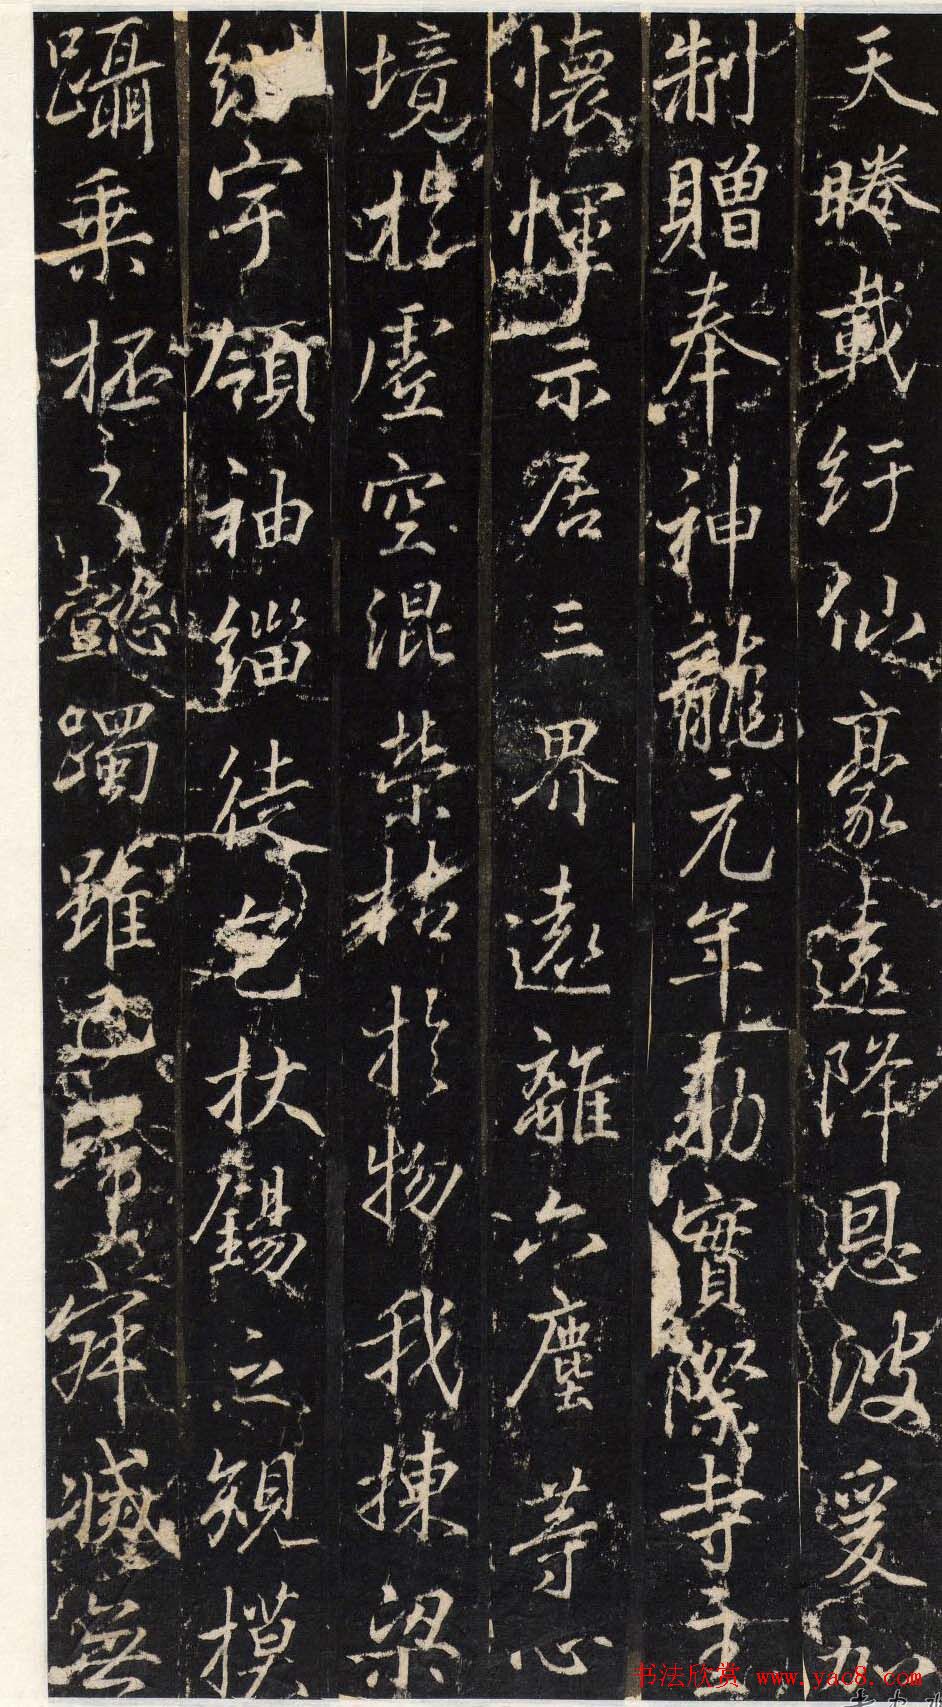 天睠載紆仙豪遠降恩波爰
制贈奉神龍元年勅實際寺主
懷惲示居三界遠離六塵等心
境於虛空混榮枯於物我棟梁
紺宇領袖緇徒包杖錫之規模
躡乘杯之懿躅雖已歸寂滅無
书法欣赏 www.yac8.com